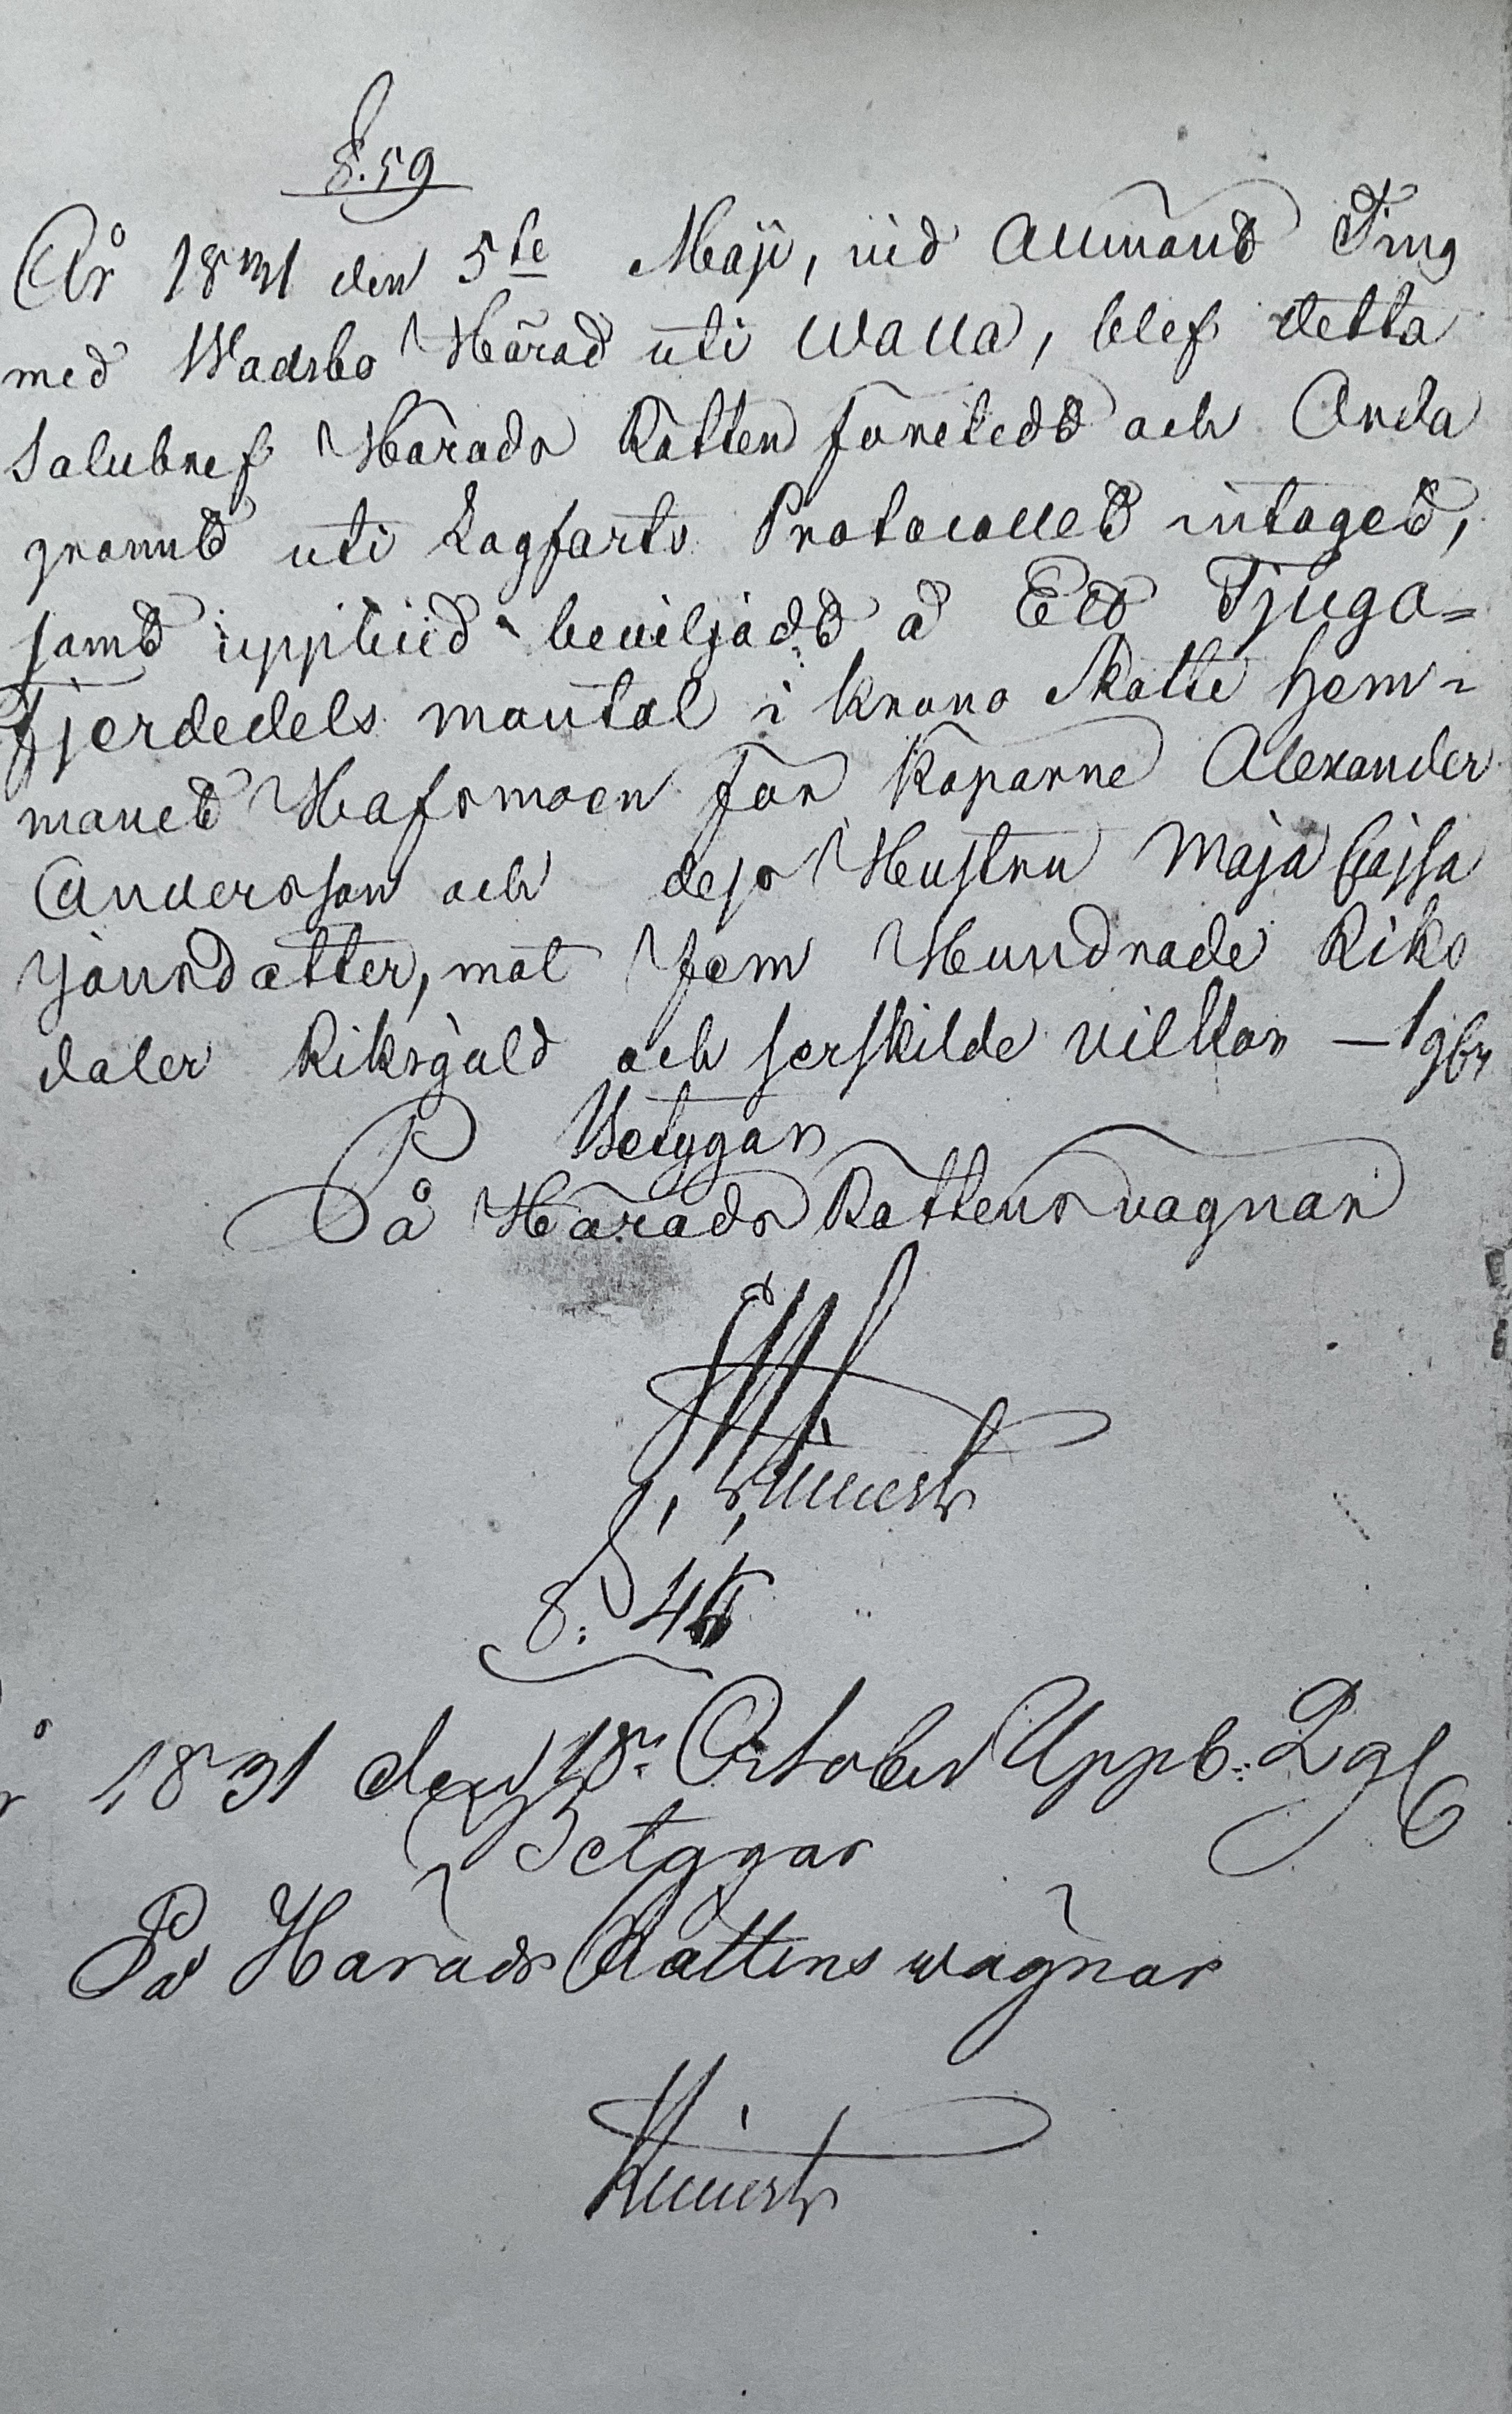 §. 59
År 1831 den 5te Maji, vid Allmänt Ting
med Wadsbo Härad uti Walla, blef detta
Salubref Härads Rätten företedt och Orda
grannt uti Lagfarts Protocollet intaget,
samt uppbud beviljadt å Ett Tjugo=
fjerdedels mantal i krono Skatte hem-
manet Hafsmoen för Köparne Alexander
Andersson och dess Hustru Maja Cajsa
Jönsdotter, mot Fem Hundrade Riks
daler Riksgäld och serskilde vilkor —
Betygar
På Härads Rättens vägnar
§. 
1831 den 18: October Uppb:
Betygar
På Härads Rättens wägnar